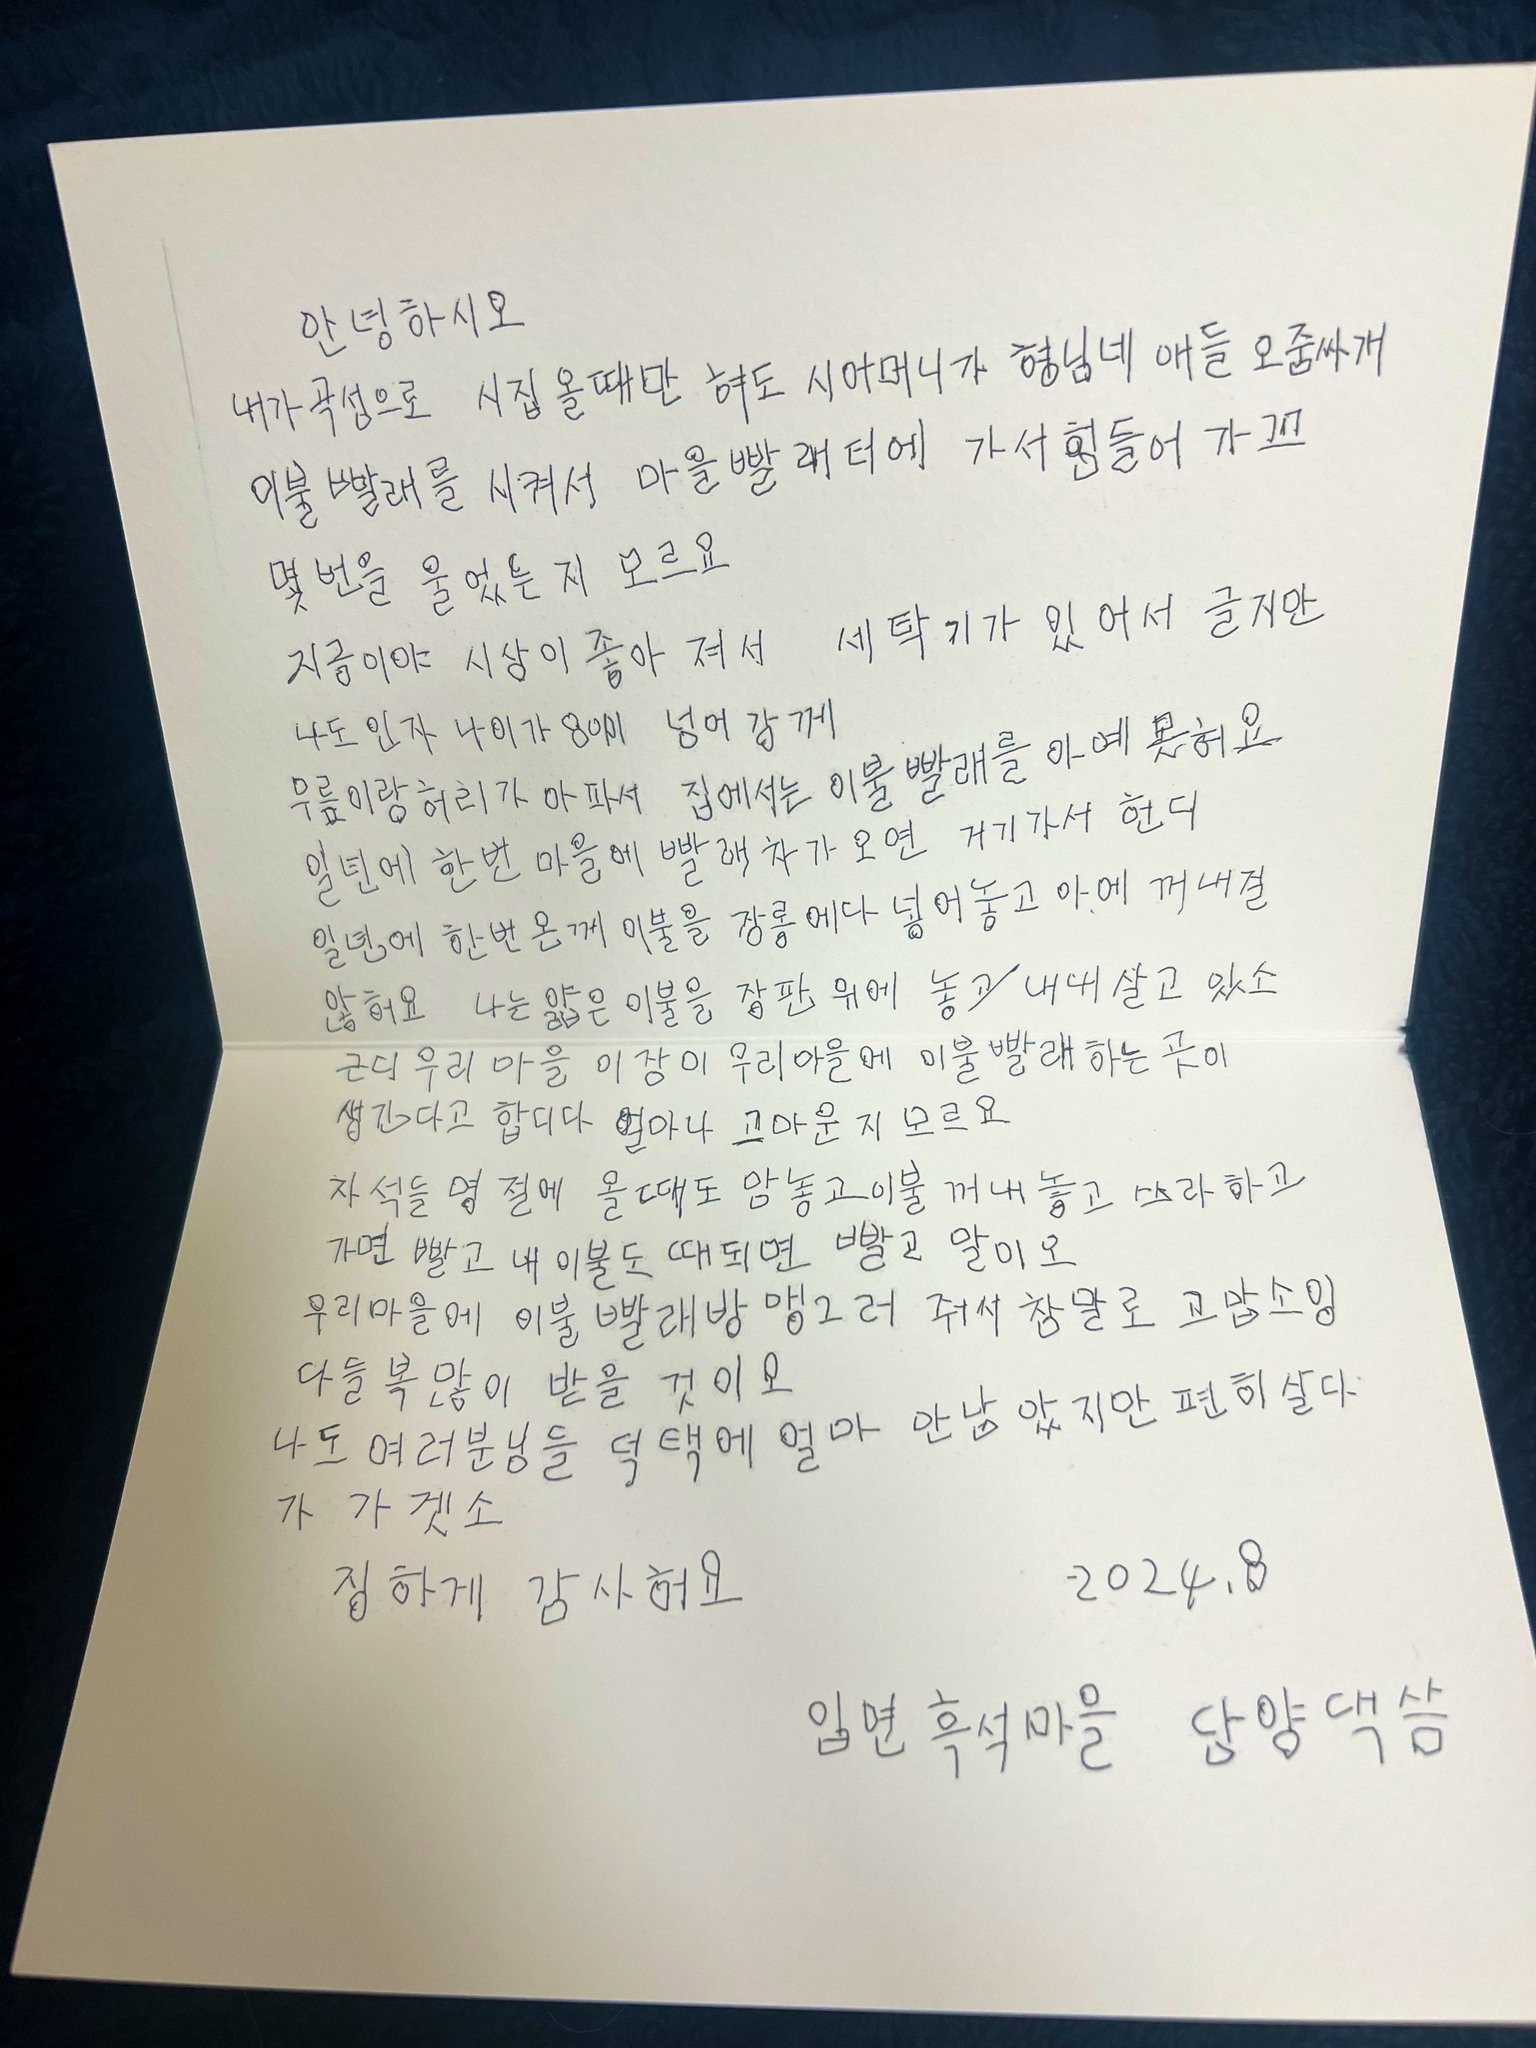 안녕하시오
내가 곡성으로 시집 올때만 혀도 시어머니가 형님네 애들 오줌싸개
이불 빨래를 시켜서 마을빨래터에 가서 힘들어 가꼬
몇번을 울었는지 모르요
지금이야 시상이 좋아져서 세탁기가 있어서 글지만
나도 인자 나이가 80이 넘어갑께
무릎이랑 허리가 아파서 집에서는 이불빨래를 아예 못혀요
일년에 한번 마을에 빨래차가 오면 거기가서 헌디
일년에 한번 온께 이불을 장롱에다 넣어놓고 아에 꺼내질
않혀요 나는 얇은 이불을 장판 위에 놓고 내내 살고 있소
근디 우리 마을 이장이 우리마을에 이불빨래하는곳이
생긴다고 합디다 얼마나 고마운지 모르요
자석들 명절에 올때도 맘놓고 이불 꺼내놓고 쓰라하고
가면 빨고 내이불도 때되면 빨고 말이오
우리마을에 이불 빨래방 맹그러 줘서 참말로 고맙소잉
다들 복많이 받을 것이오
나도 여러분님들 덕택에 얼마 안남았지만 편히살다
가 가겟소
징하게 감사혀요 2024.8
입면 흑석마을 담양댁 씀